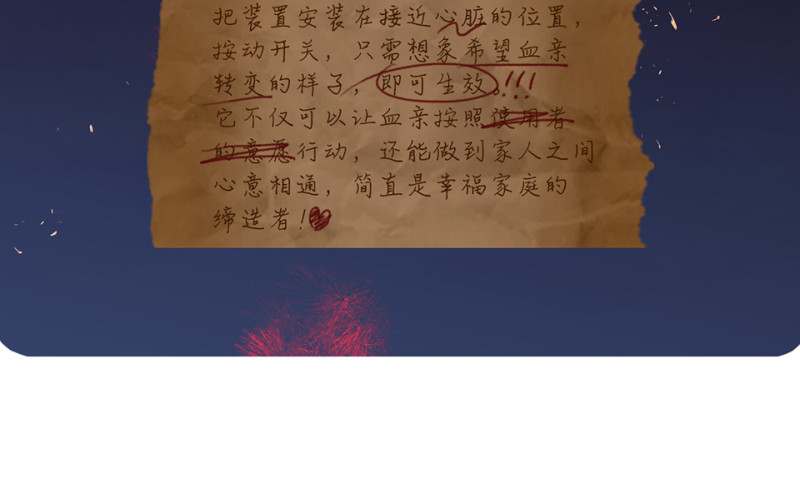 把装置安装在接近心脏的位置，
按动开关，只需想象希望血亲
转变的样子，即可生效。!!!
它不仅可以让血亲按照使用者
的意愿行动，还能做到家人之间
心意相通，简直是幸福家庭的
缔造者！